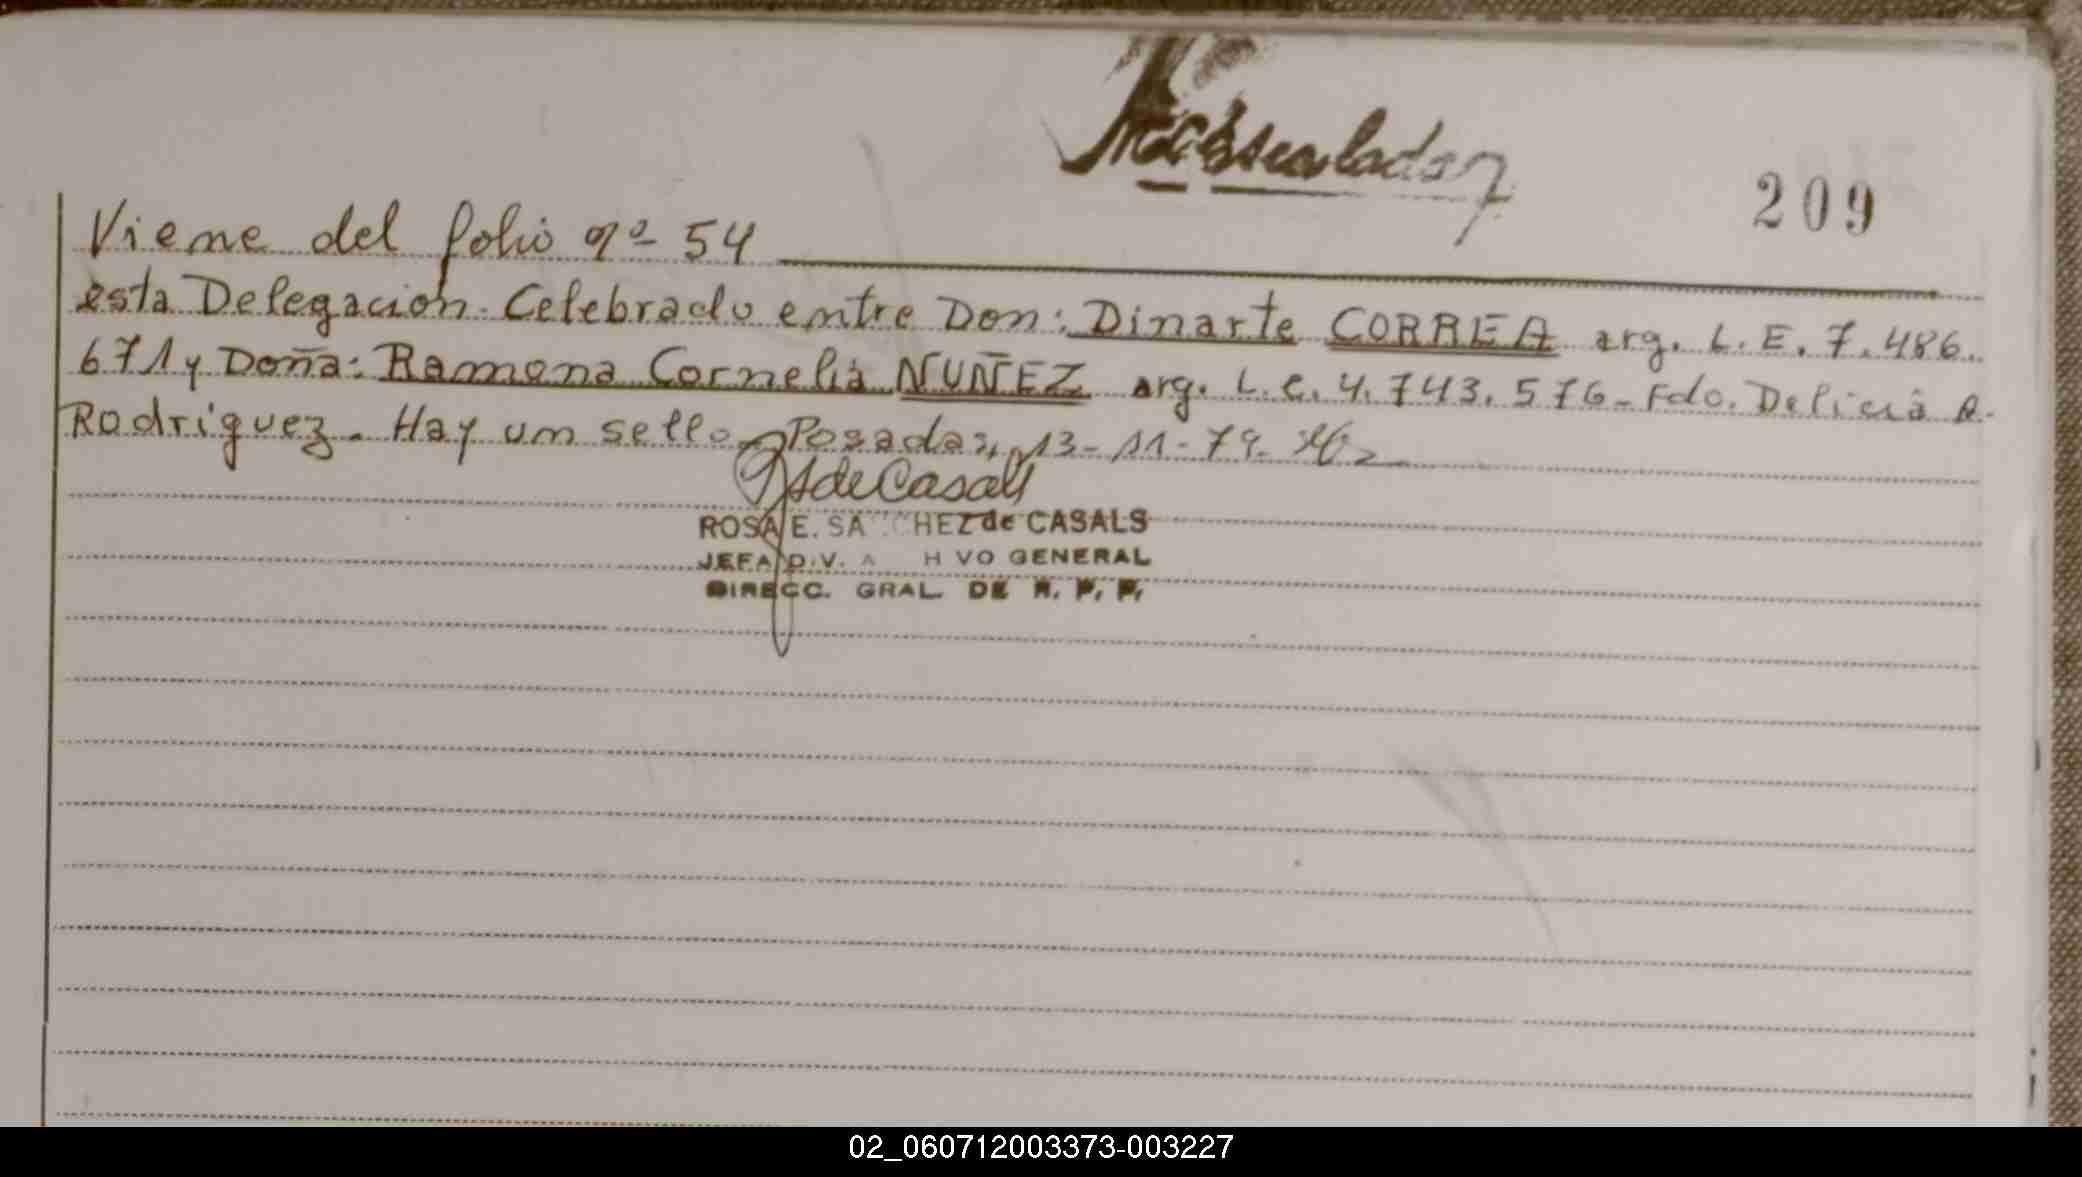 209
Viene del folio nº 54
esta Delegación. Celebrado entre Don: Dinarte CORREA arg. L.E. 7.486.
671 y Doña: Ramona Cornelia NUÑEZ arg. L.C. 4.743.576 - Fdo. Delicia A.
Rodriguez. Hay un sello. Posadas, 13-11-79.
de Casals
ROSA E. SA CHEZ de CASALS
JEFA DIV. A H VO GENERAL
DIRECC. GRAL. DE R. P. P.
02_060712003373-003227